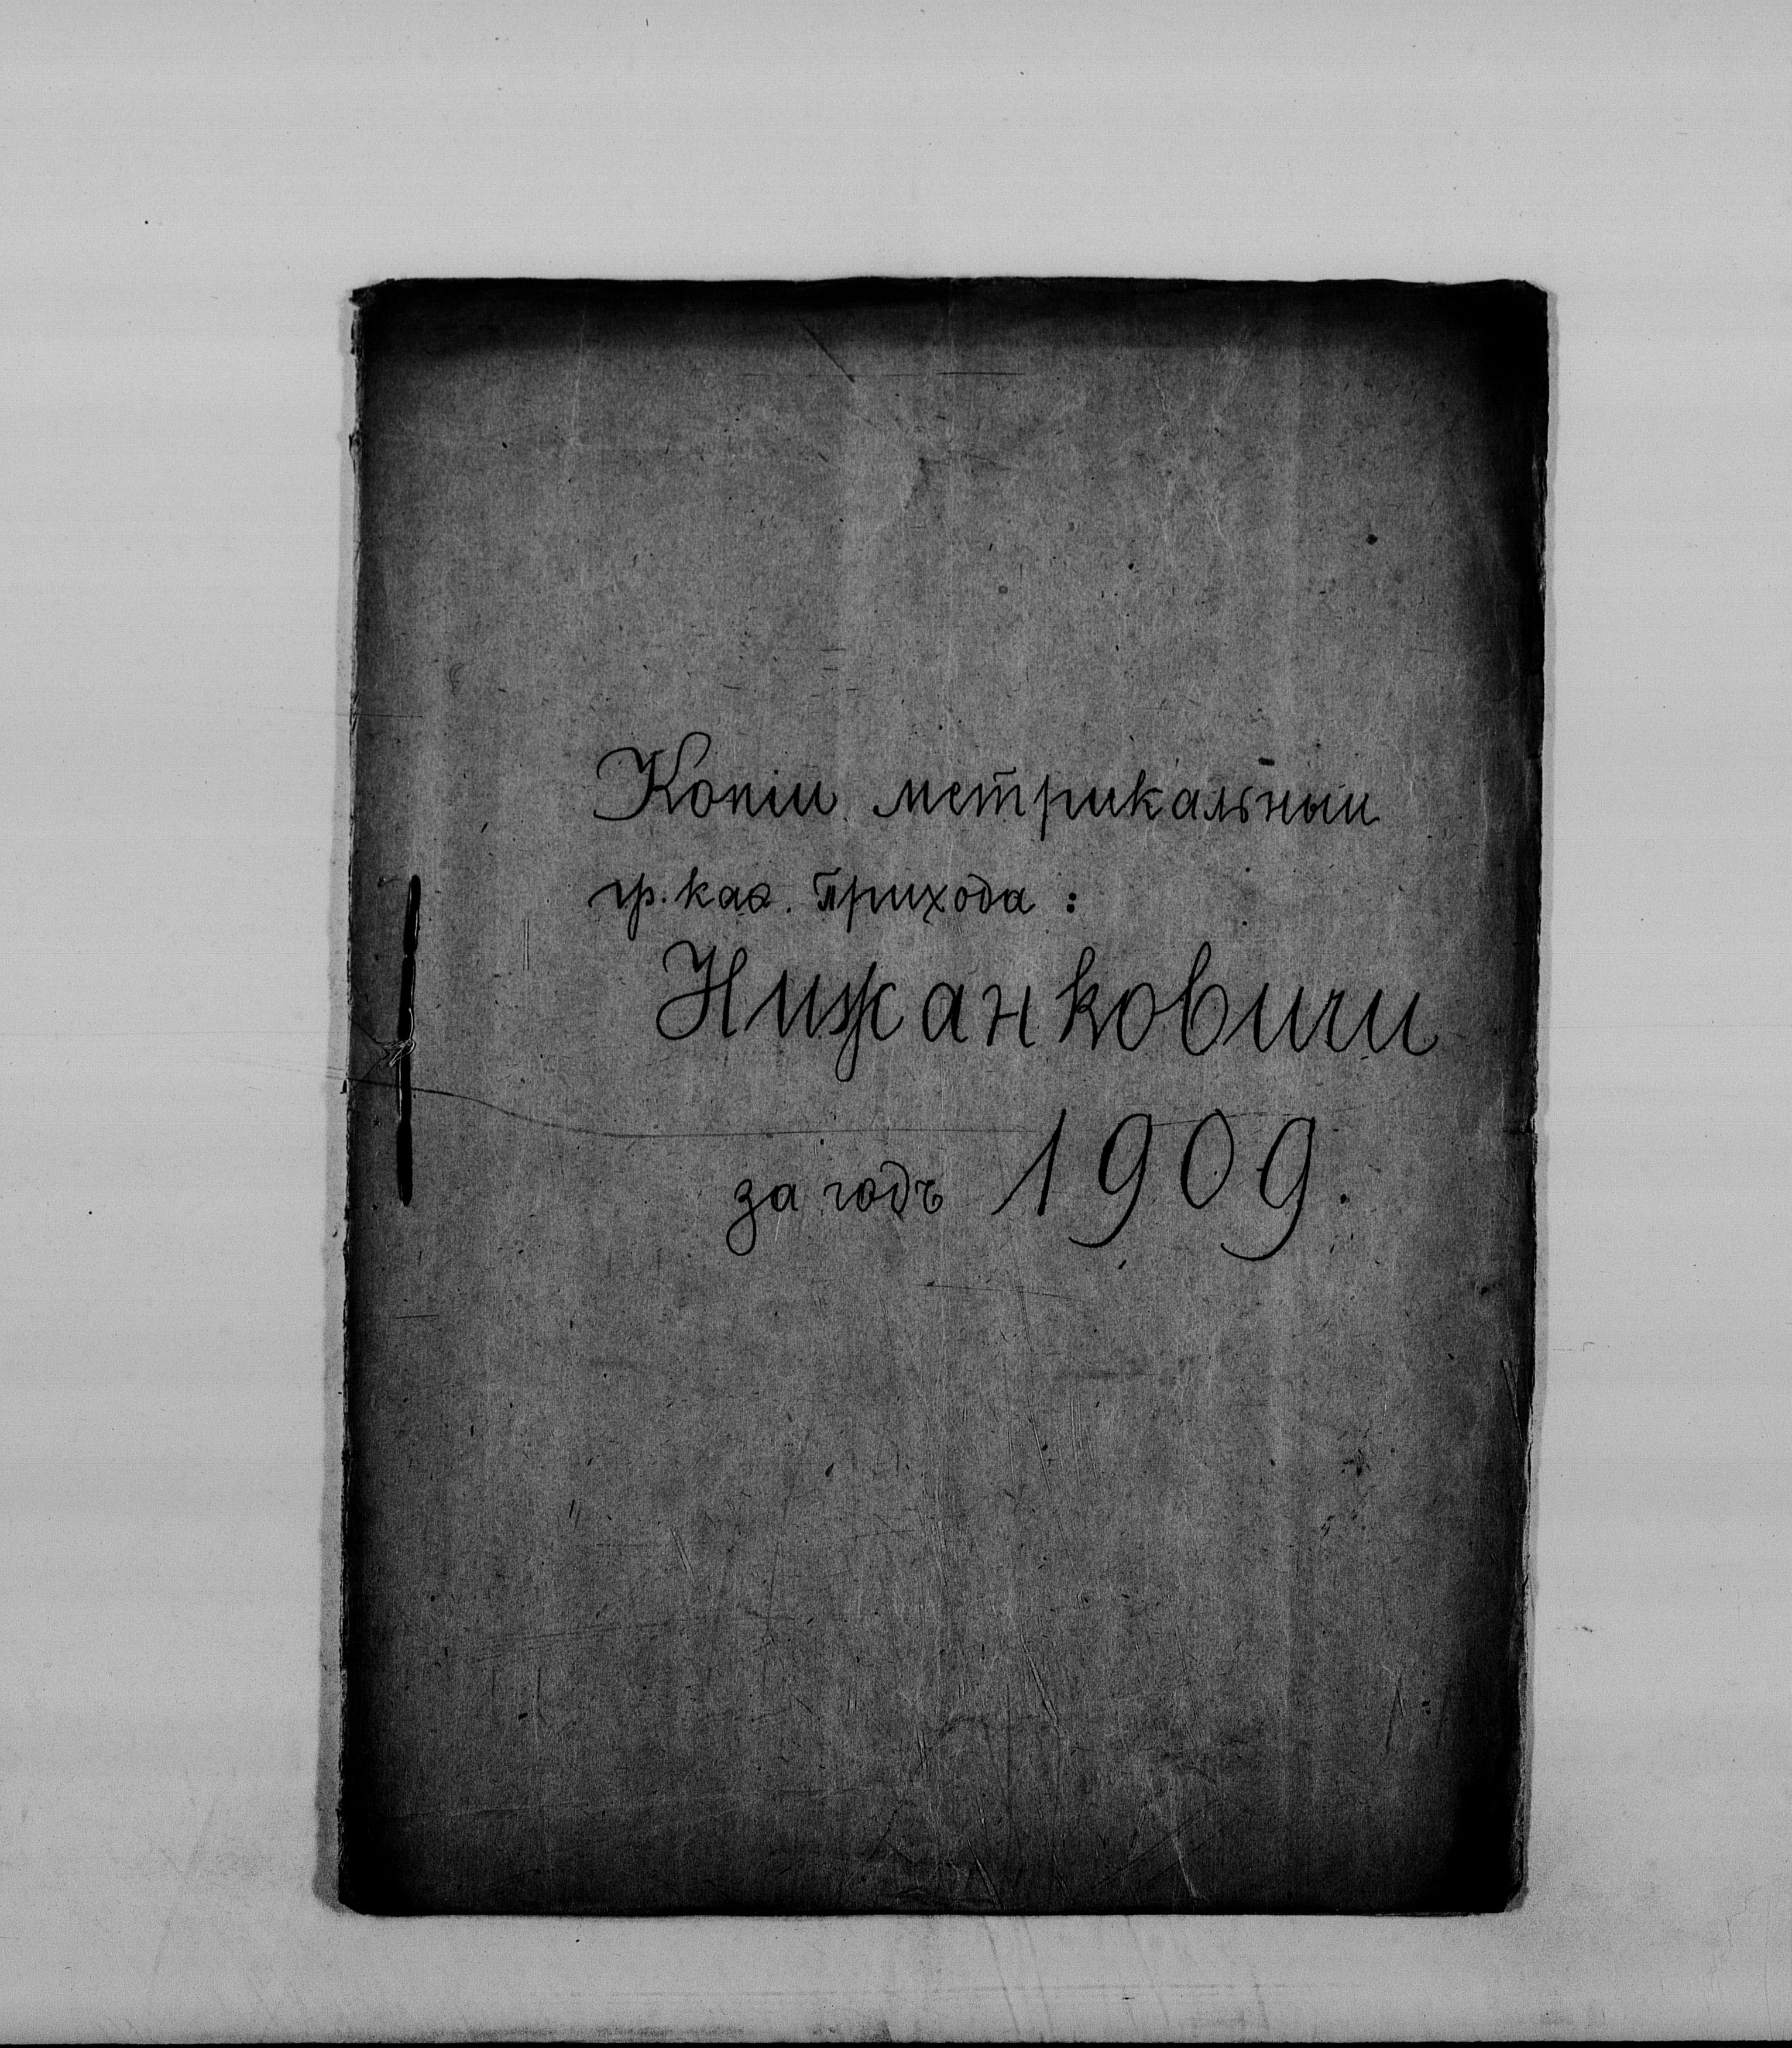 Копіи метрикальныи
гр. каѳ. прихода :
Нижанковичи
за годъ 1909.